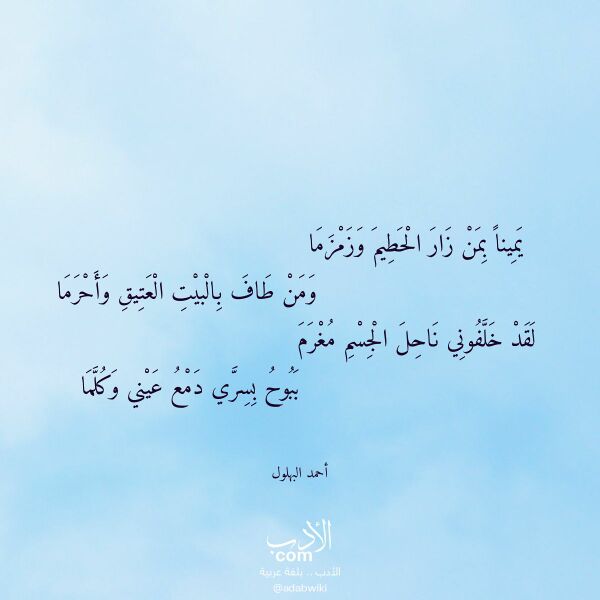 يَمِيناً بِمَنْ زَارَ الْحَطِيمَ وَزَمْزَمَا
وَمَنْ طَافَ بِالْبَيْتِ الْعَتِيقِ وَأَحْرَمَا
لَقَدْ خَلَّفُونِي نَاحِلَ الْجِسْمِ مُغْرَمَ
بَبُوحُ بِسِرَّي دَمْعُ عَيْنِي وَكُلَّمَا
أحمد البهلول
الأدب
.com
الأدب .. بلغة عربية
@adabwiki